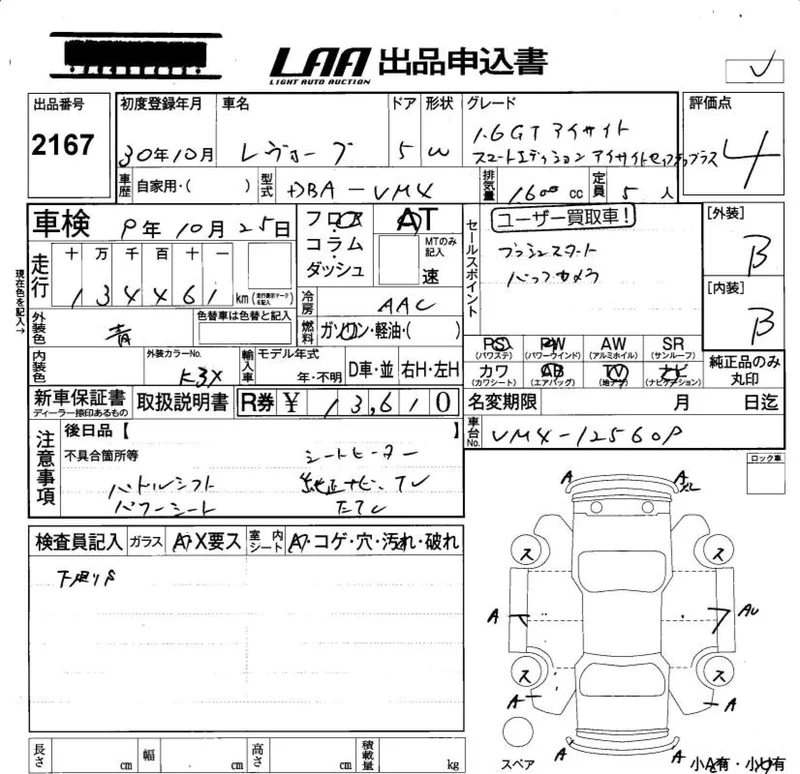 LAA 出品申込書
LIGHT AUTO AUCTION
出品番号 初度登録年月 車名 ドア 形状 グレード 評価点
2167 30年10月 レヴォーグ 5 W 1.6GTアイサイト
スマートエディション アイサイトセイフティプラス
4
車歴 自家用・( ) 型式 DBA-VM4 排気量 1600cc 定員 5人
車検 9年10月25日 フロア AT
コラム・
ダッシュ
MTのみ記入
速
セールスポイント ユーザー買取車!
プッシュスタート
バックカメラ
[外装]
B
[内装]
B
現在色を記入→
走行 十 万 千 百 十 一
134461 km (走行表示マークを記入)
冷房 AAC
燃料 ガソリン・軽油・( )
外装色 青 色替車は色替と記入
内装色 外装カラーNo. K3X 輸入車 モデル年式 年・不明 D車・並 右H・左H
PS PW AW SR
(パワステ) (パワーウインド) (アルミホイル) (サンルーフ)
カワ AB TV ナビ
(カワシート) (エアバッグ) (地デジ) (ナビゲーション)
純正品のみ丸印
新車保証書 取扱説明書 R券 ¥ 13,610 名変期限 月 日迄
ディーラー捺印あるもの
車台No. VM4-125609
注意事項 後日品【 】
不具合箇所等 シートヒーター
パドルシフト 純正ナビ、TV
パワーシート
ロック車
検査員記入 ガラス A・X要ス 室内シート A・コゲ・穴・汚れ・破れ
下廻りS
A A
ス ス
A AU
ス ス
A A
A A
スペア
小A有・小U有
長さ cm 幅 cm 高さ cm 積載量 kg